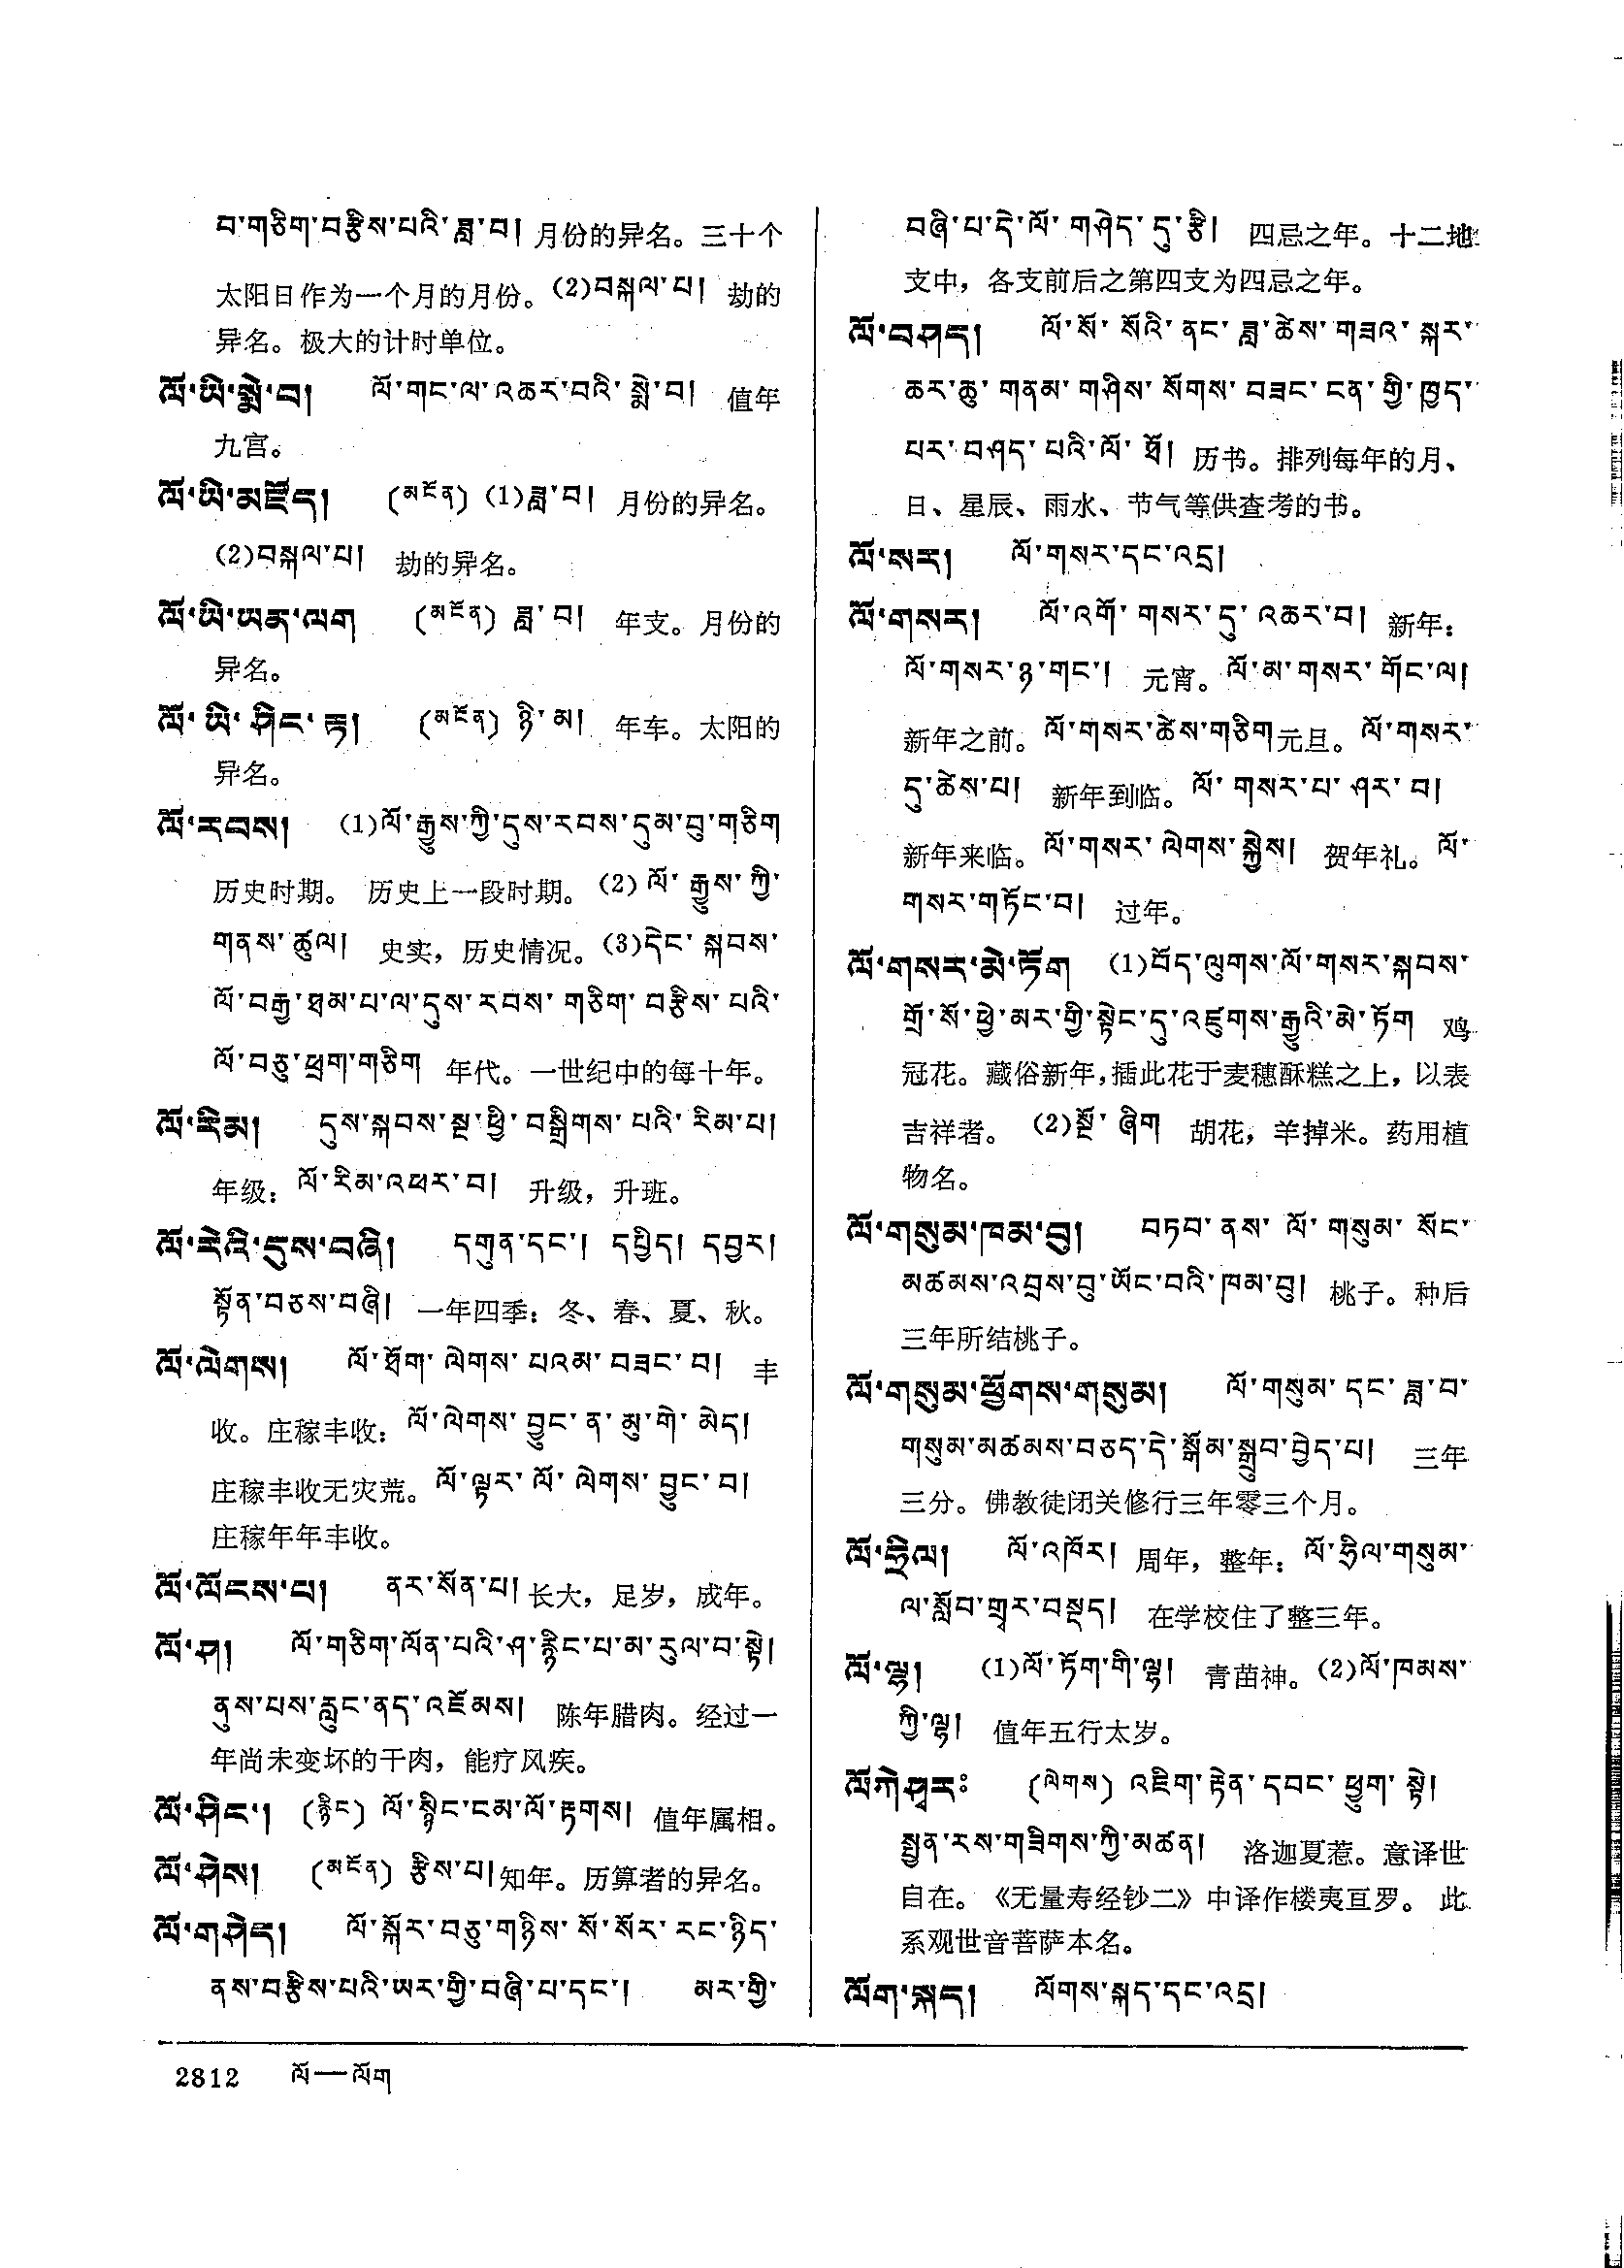 བ་གཅིག་བརྩིས་པའི་ཟླ་བ། 月份的异名。三十个
太阳日作为一个月的月份。(2)བསྐལ་པ། 劫的
异名。极大的计时单位。
ལོ་ཡི་སྨེ་བ། ལོ་གང་ལ་འཆར་བའི་སྨེ་བ། 值年
九宫。
ལོ་ཡི་མཛོད། (མངོན) (1)ཟླ་བ། 月份的异名。
(2)བསྐལ་པ། 劫的异名。
ལོ་ཡི་ཡན་ལག (མངོན) ཟླ་བ། 年支。月份的
异名。
ལོ་ཡི་ཤིང་རྟ། (མངོན) ཉི་མ། 年车。太阳的
异名。
ལོ་རབས། (1)ལོ་རྒྱུས་ཀྱི་དུས་རབས་དུམ་བུ་གཅིག
历史时期。 历史上一段时期。(2) ལོ་རྒྱུས་ཀྱི་
གནས་ཚུལ། 史实，历史情况。(3)དེང་སྐབས་
ལོ་བརྒྱ་ཐམ་པ་ལ་དུས་རབས་གཅིག་བརྩིས་པའི་
ལོ་བཅུ་ཕྲག་གཅིག 年代。一世纪中的每十年。
ལོ་རིམ། དུས་སྐབས་སྔ་ཕྱི་བསྒྲིགས་པའི་རིམ་པ།
年级：ལོ་རིམ་འཕར་བ། 升级，升班。
ལོ་རེའི་དུས་བཞི། དགུན་དང་། དཔྱིད། དབྱར།
སྟོན་བཅས་བཞི། 一年四季：冬、春、夏、秋。
ལོ་ལེགས། ལོ་ཐོག་ལེགས་པའམ་བཟང་བ། 丰
收。庄稼丰收：ལོ་ལེགས་བྱུང་ན་མུ་གེ་མེད།
庄稼丰收无灾荒。ལོ་ལྟར་ལོ་ལེགས་བྱུང་བ།
庄稼年年丰收。
ལོ་ལོངས་པ། ནར་སོན་པ། 长大，足岁，成年。
ལོ་ཤ། ལོ་གཅིག་ལོན་པའི་ཤ་རྙིང་པ་མ་རུལ་བ་སྟེ།
ནུས་པས་རླུང་ནད་འཇོམས། 陈年腊肉。经过一
年尚未变坏的干肉，能疗风疾。
ལོ་ཤིང་། (རྙིང) ལོ་སྙིང་ངམ་ལོ་རྟགས། 值年属相。
ལོ་ཤེས། (མངོན) རྩིས་པ། 知年。历算者的异名。
ལོ་གཤེད། ལོ་སྐོར་བཅུ་གཉིས་སོ་སོར་རང་ཉིད་
ནས་བརྩིས་པའི་ཡར་གྱི་བཞི་པ་དང་། མར་གྱི་
བཞི་པ་དེ་ལོ་གཤེད་དུ་རྩི། 四忌之年。十二地
支中，各支前后之第四支为四忌之年。
ལོ་བཤད། ལོ་སོ་སོའི་ནང་ཟླ་ཚེས་གཟའ་སྐར་
ཆར་ཆུ་གནམ་གཤིས་སོགས་བཟང་ངན་གྱི་ཁྱད་
པར་བཤད་པའི་ལོ་ཐོ། 历书。排列每年的月、
日、星辰、雨水、节气等供查考的书。
ལོ་སར། ལོ་གསར་དང་འདྲ།
ལོ་གསར། ལོ་འགོ་གསར་དུ་འཆར་བ། 新年：
ལོ་གསར་ཉ་གང་། 元宵。ལོ་མ་གསར་གོང་ལ།
新年之前。ལོ་གསར་ཚེས་གཅིག元旦。ལོ་གསར་
དུ་ཚེས་པ། 新年到临。ལོ་གསར་པ་ཤར་བ།
新年来临。ལོ་གསར་ལེགས་སྐྱེས། 贺年礼。ལོ་
གསར་གཏོང་བ། 过年。
ལོ་གསར་མེ་ཏོག (1)བོད་ལུགས་ལོ་གསར་སྐབས་
གྲོ་སོ་ཕྱེ་མར་གྱི་སྟེང་དུ་འཛུགས་རྒྱུའི་མེ་ཏོག 鸡
冠花。藏俗新年，插此花于麦穗酥糕之上，以表
吉祥者。 (2)སྔོ་ཞིག 胡花，羊掉米。药用植
物名。
ལོ་གསུམ་ཁམ་བུ། བཏབ་ནས་ལོ་གསུམ་སོང་
མཚམས་འབྲས་བུ་ཡོང་བའི་ཁམ་བུ། 桃子。种后
三年所结桃子。
ལོ་གསུམ་ཕྱོགས་གསུམ། ལོ་གསུམ་དང་ཟླ་བ་
གསུམ་མཚམས་བཅད་དེ་སྒོམ་སྒྲུབ་བྱེད་པ། 三年
三分。佛教徒闭关修行三年零三个月。
ལོ་ཧྲིལ། ལོ་འཁོར། 周年，整年：ལོ་ཧྲིལ་གསུམ་
ལ་སློབ་གྲྭར་བསྡད། 在学校住了整三年。
ལོ་ལྷ། (1)ལོ་ཏོག་གི་ལྷ། 青苗神。(2)ལོ་ཁམས་
ཀྱི་ལྷ། 值年五行太岁。
ལོཀེཤྭརཿ (ལེགས) འཇིག་རྟེན་དབང་ཕྱུག་སྟེ།
སྤྱན་རས་གཟིགས་ཀྱི་མཚན། 洛迦夏惹。意译世
自在。《无量寿经钞二》中译作楼夷亘罗。 此
系观世音菩萨本名。
ལོག་སྐད། ལོགས་སྐད་དང་འདྲ།
2812 ལོ—ལོག